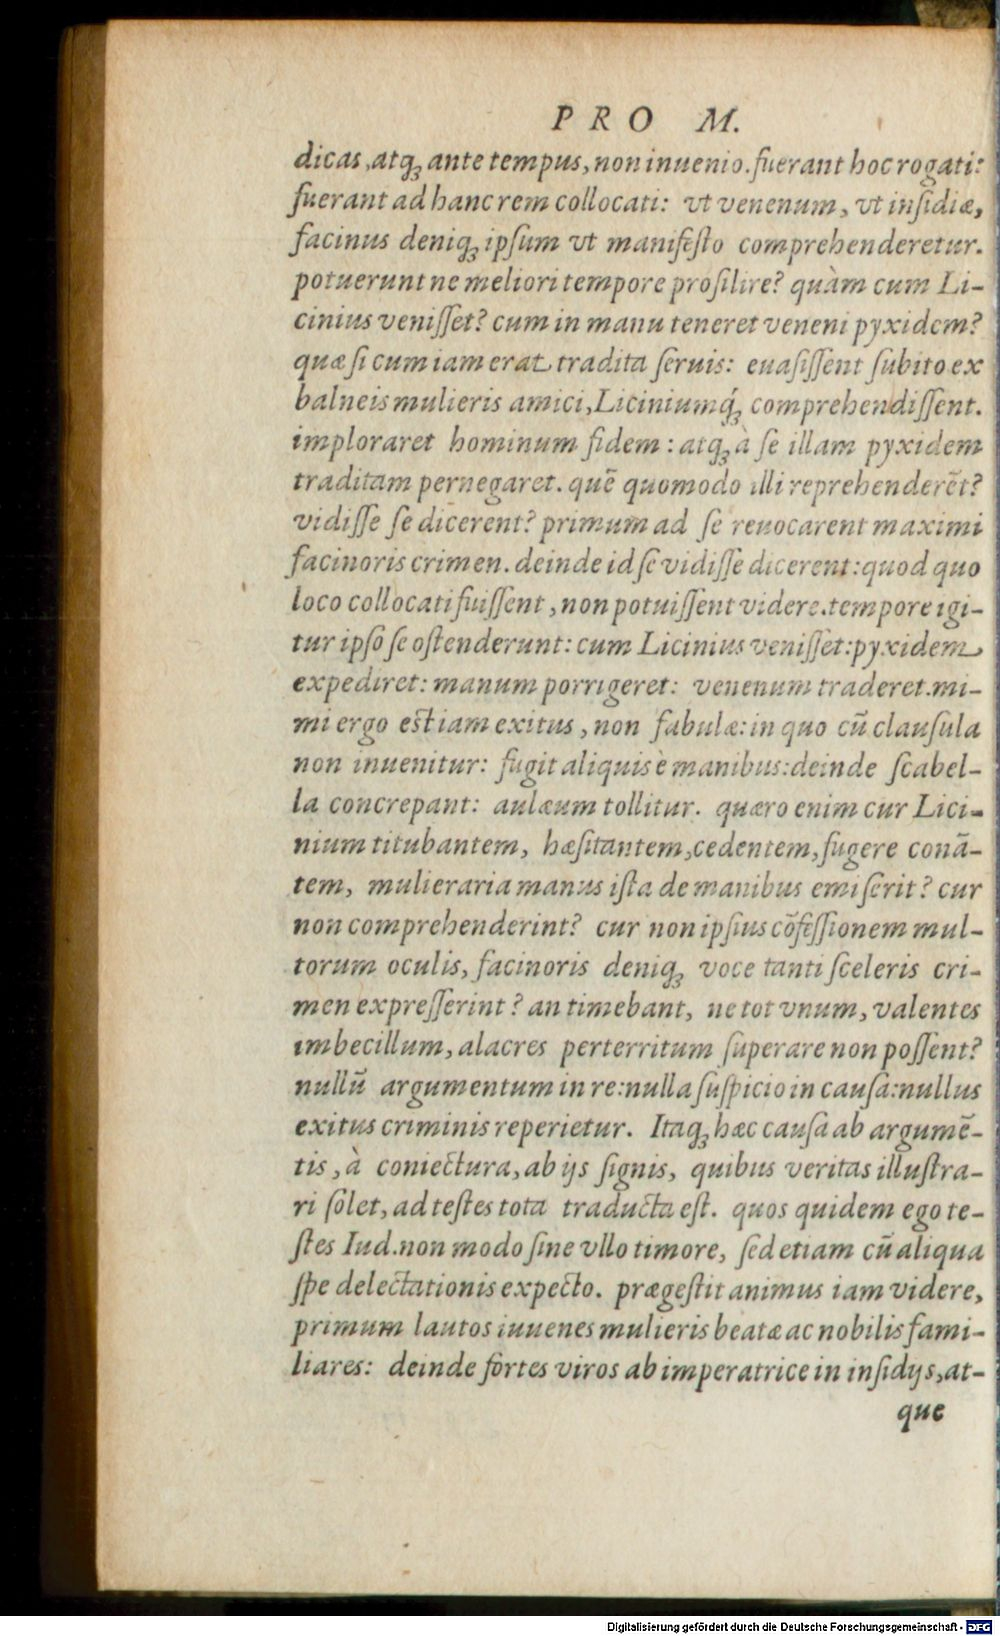 PRO M.
dicas, atq₃ ante tempus, non inuenio. fuerant hoc rogati:
fuerant ad hanc rem collocati: vt venenum, vt insidiæ,
facinus deniq₃ ipsum vt manifesto comprehenderetur.
potuerunt ne meliori tempore prosilire? quàm cum Li-
cinius venisset? cum in manu teneret veneni pyxidem?
quæ si cum iam erat tradita seruis: euasissent subito ex
balneis mulieris amici, Liciniumq́₃ comprehendissent.
imploraret hominum fidem: atq₃ à se illam pyxidem
traditam pernegaret. quē quomodo illi reprehenderēt?
vidisse se dicerent? primum ad se reuocarent maximi
facinoris crimen. deinde id se vidisse dicerent: quod quo
loco collocati fuissent, non potuissent videre. tempore igi-
tur ipso se ostenderunt: cum Licinius venisset: pyxidem
expediret: manum porrigeret: venenum traderet. mi-
mi ergo est iam exitus, non fabulæ: in quo cū clausula
non inuenitur: fugit aliquis è manibus: deinde scabel-
la concrepant: aulæum tollitur. quæro enim cur Lici-
nium titubantem, hæsitantem, cedentem, fugere conā-
tem, mulieraria manus ista de manibus emiserit? cur
non comprehenderint? cur non ipsius cōfessionem mul-
torum oculis, facinoris deniq₃ voce tanti sceleris cri-
men expresserint? an timebant, ne tot vnum, valentes
imbecillum, alacres perterritum superare non possent?
nullū argumentum in re: nulla suspicio in causa: nullus
exitus criminis reperietur. Itaq₃ hæc causa ab argumē-
tis, à coniectura, ab ijs signis, quibus veritas illustra-
ri solet, ad testes tota traducta est. quos quidem ego te-
stes Iud. non modo sine vllo timore, sed etiam cū aliqua
spe delectationis expecto. prægestit animus iam videre,
primum lautos iuuenes mulieris beatæ ac nobilis fami-
liares: deinde fortes viros ab imperatrice in insidijs, at-
que
Digitalisierung gefördert durch die Deutsche Forschungsgemeinschaft - DFG